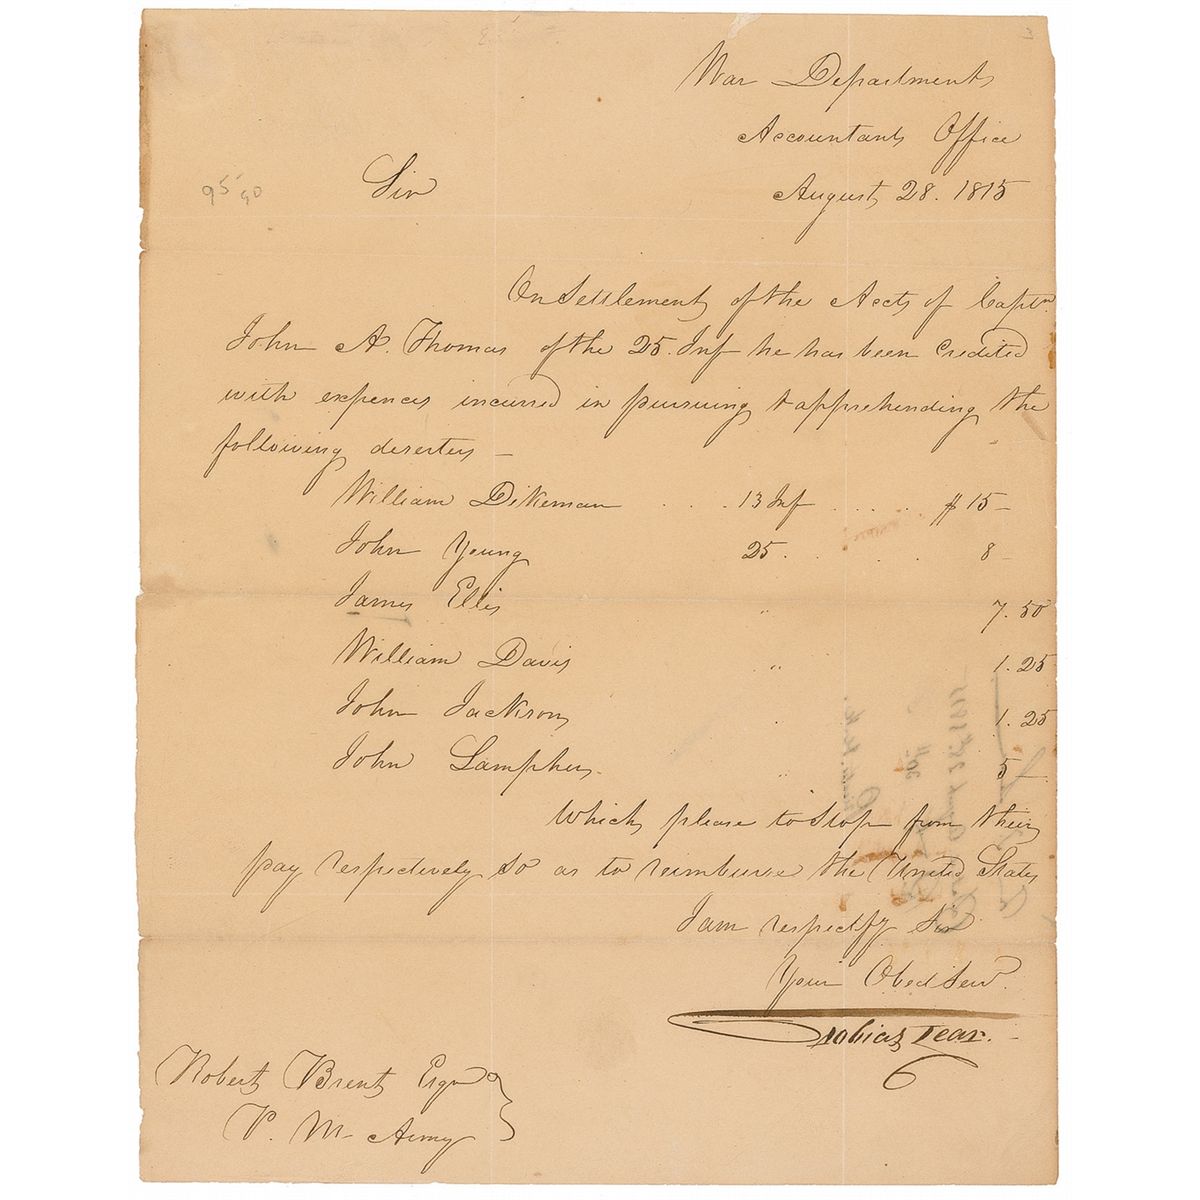 War Department
Accountants Office
August 28. 1815
Sir
On Settlement of the Accts of Captn.
John A. Thomas of the 25. Inf he has been Credited
with expences incurred in pursuing & apprehending the
following deserters –
William Dikeman . . . 13 Inf . . . . $ 15 –
John Young 25 . . . 8 –
James Ellis " 7. 50
William Davis " 1. 25
John Jackson " 1. 25
John Lampher " 5 –
Which please to stop from their
pay respectively so as to reimburse the United States
I am respectfy Sir
Your Obed Serv.
Tobias Lear.
Robert Brent Esqr
P. M. Army